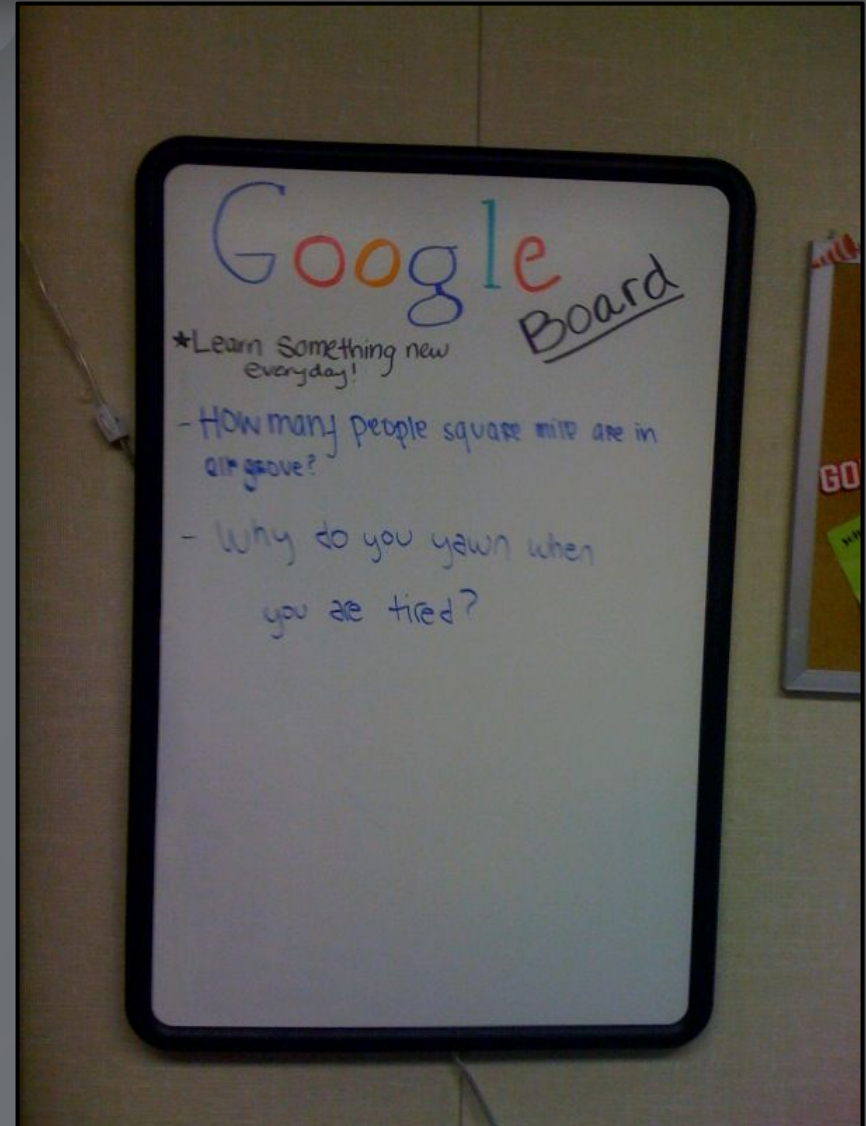 Google
Board
*Learn something new
everyday!
- How many people square mile are in
elk grove?
- Why do you yawn when
you are tired?
GO